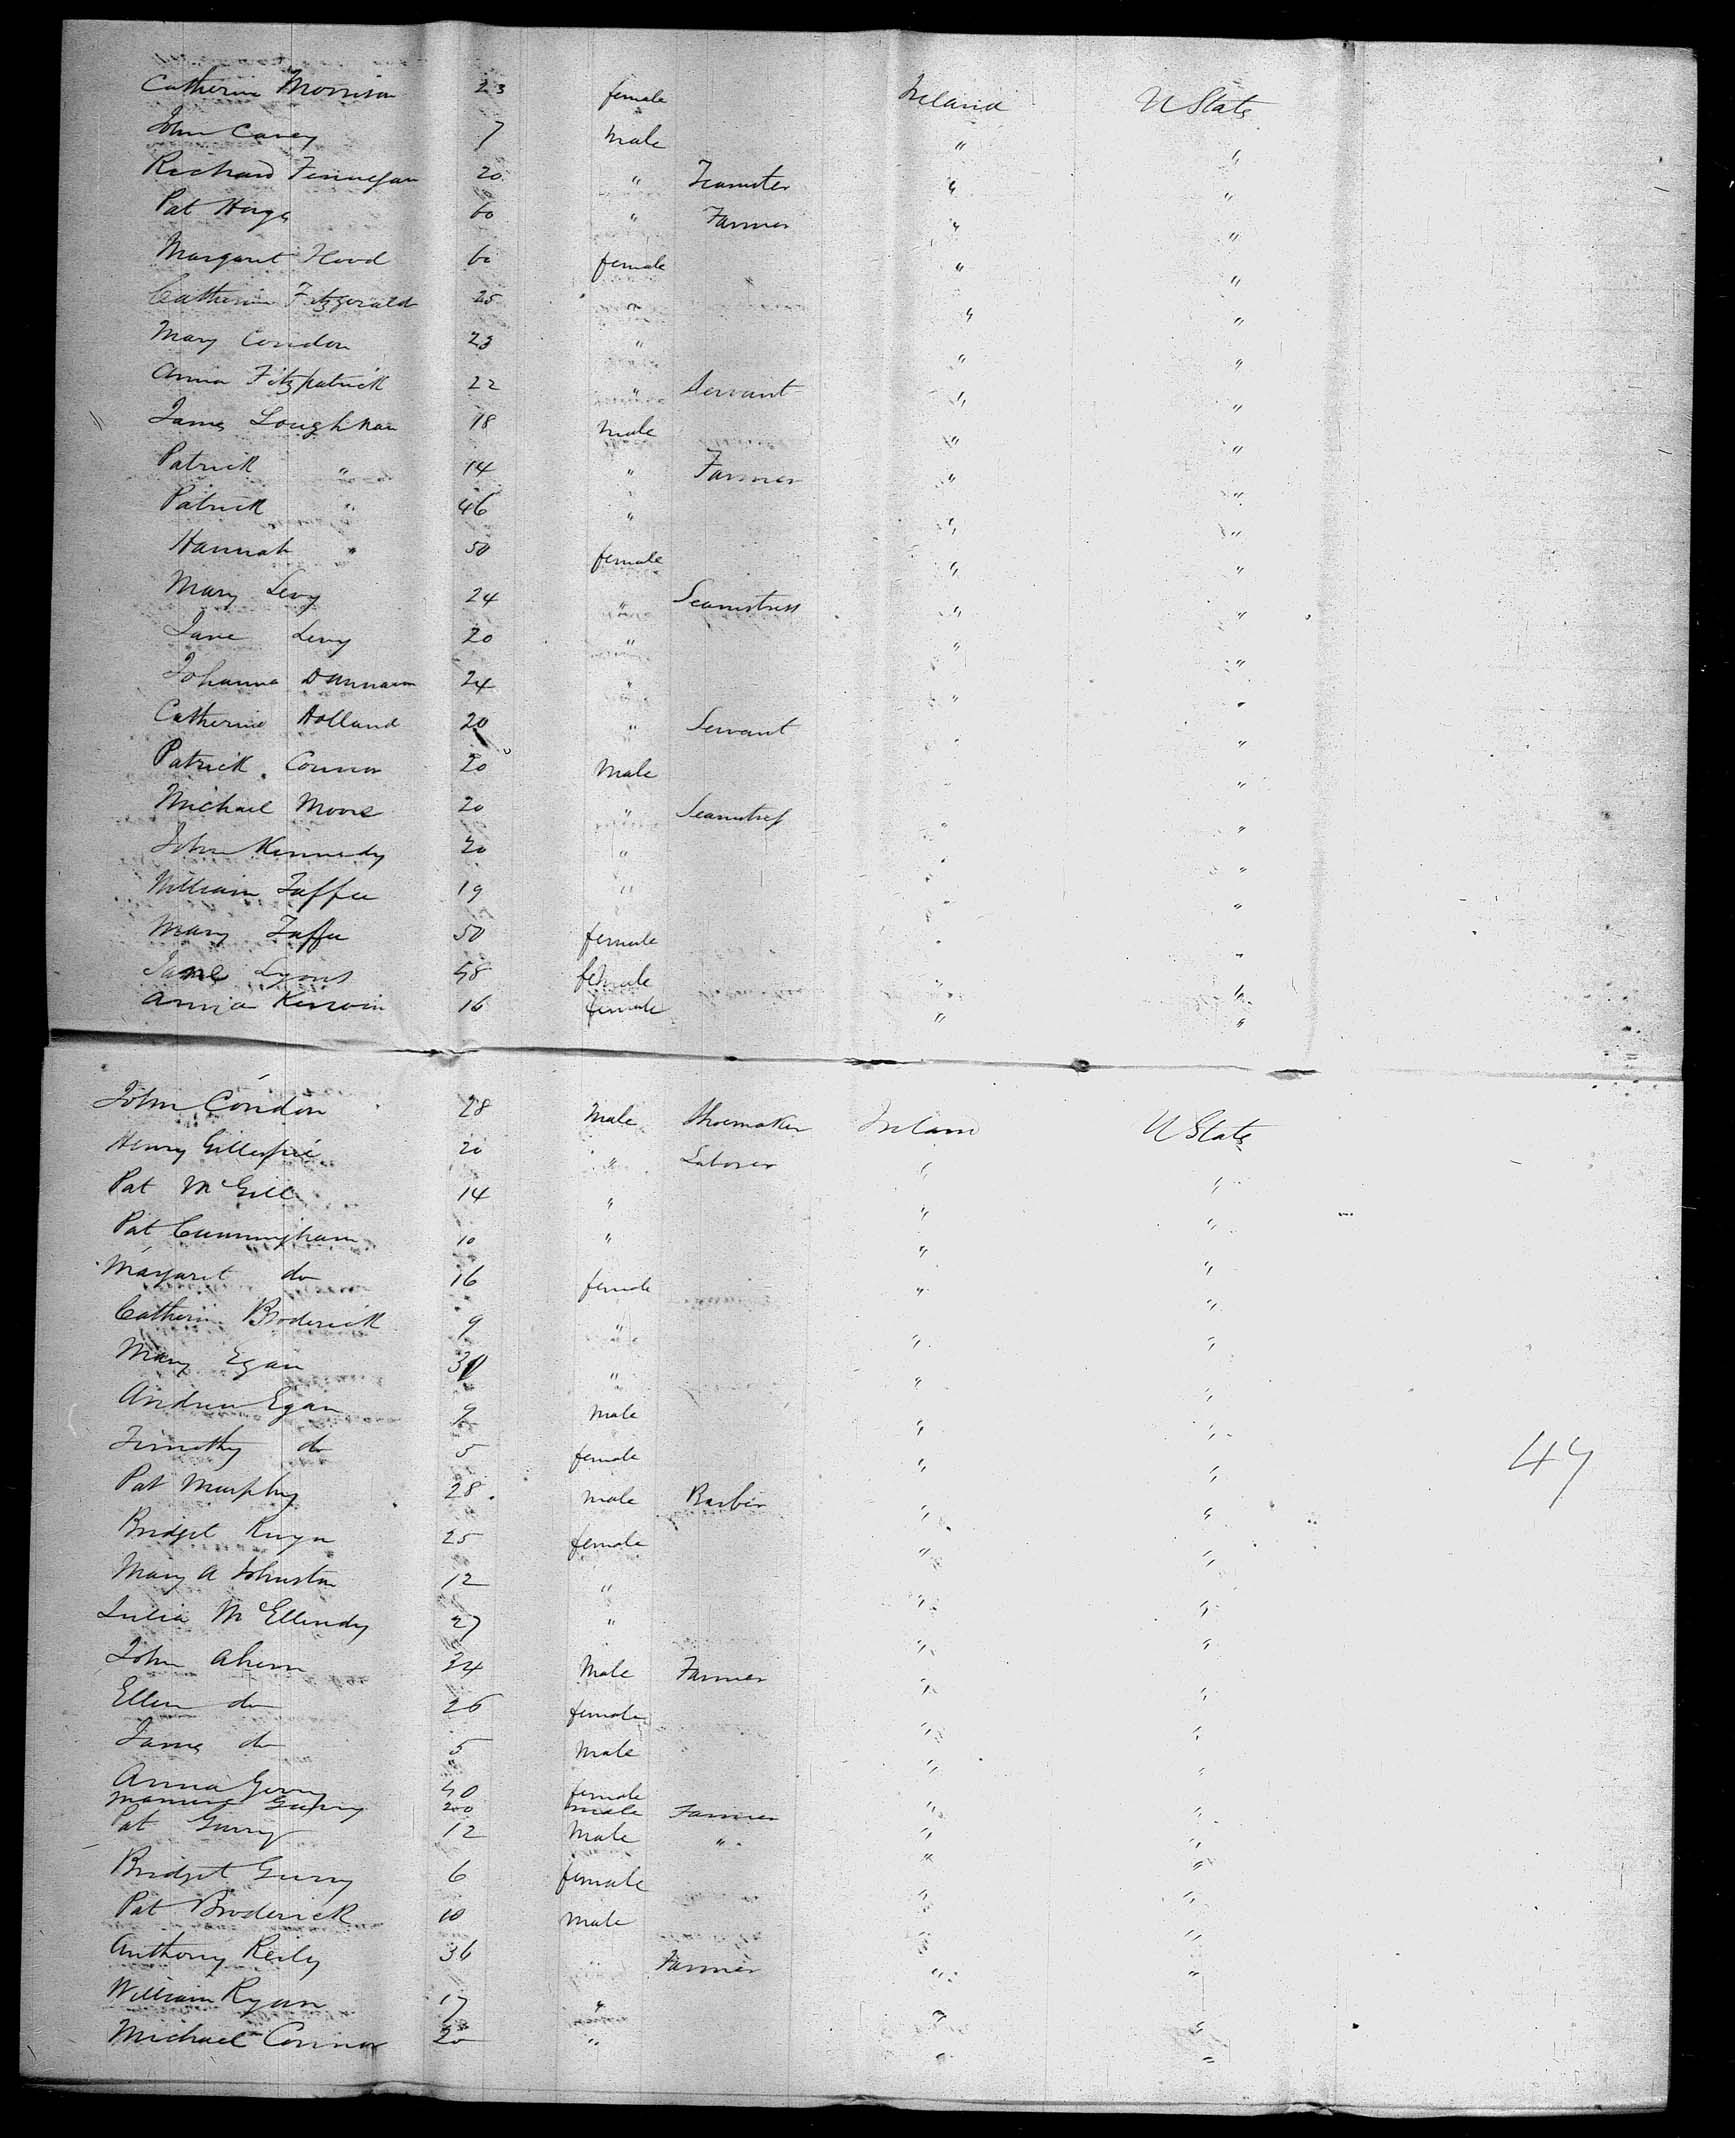 Catherine Morrison 23 female Ireland U State
John Carey 7 male " "
Richard Finnegan 20 " Teamster " "
Pat Hays 60 " Farmer " "
Margaret Hood 60 female " "
Catherine Fitzgerald 25 " " "
Mary Condon 23 " " "
Anna Fitzpatrick 22 " Servant " "
James Loughnan 18 male " "
Patrick " 14 " Farmer " "
Patrick " 46 " " "
Hannah " 50 female " "
Mary Levy 24 " Seamstress " "
Jane Levy 20 " " "
Johanna 24 " " "
Catherine Holland 20 " Servant " "
Patrick Connor 20 Male "
Michael Moore 20 " Seamstress " "
John Kennedy 20 " " "
William Taffee 19 " " "
Mary Taffe 50 female " "
Jane Lyons 48 female " "
Annia Kerwin 16 female " "
John Condon 28 Male Shoemaker Ireland U State
Henry Gillespie 20 " Laborer " "
Pat McGill 14 " " "
Pat Cunningham 10 " " "
Margaret do 16 female " "
Catherin Broderick 9 " " "
Mary Egan 30 " " "
Andrew Egan 9 Male " "
Timothy do 5 female " "
47
Pat Murphy 28 male Barber " "
Bridget 25 female " "
Mary A Johnston 12 " " "
Julia McEllendy 27 " " "
John Ahern 24 Male Farmer " "
Ellen do 26 female " "
James do 5 Male " "
Anna 40 female " "
20 male Farmer " "
Pat 12 Male " " "
Bridget 6 female " "
Pat Broderick 10 Male " "
Anthony Reily 36 " Farmer " "
William Ryan 17 " " "
Michael Connor 20 " " "